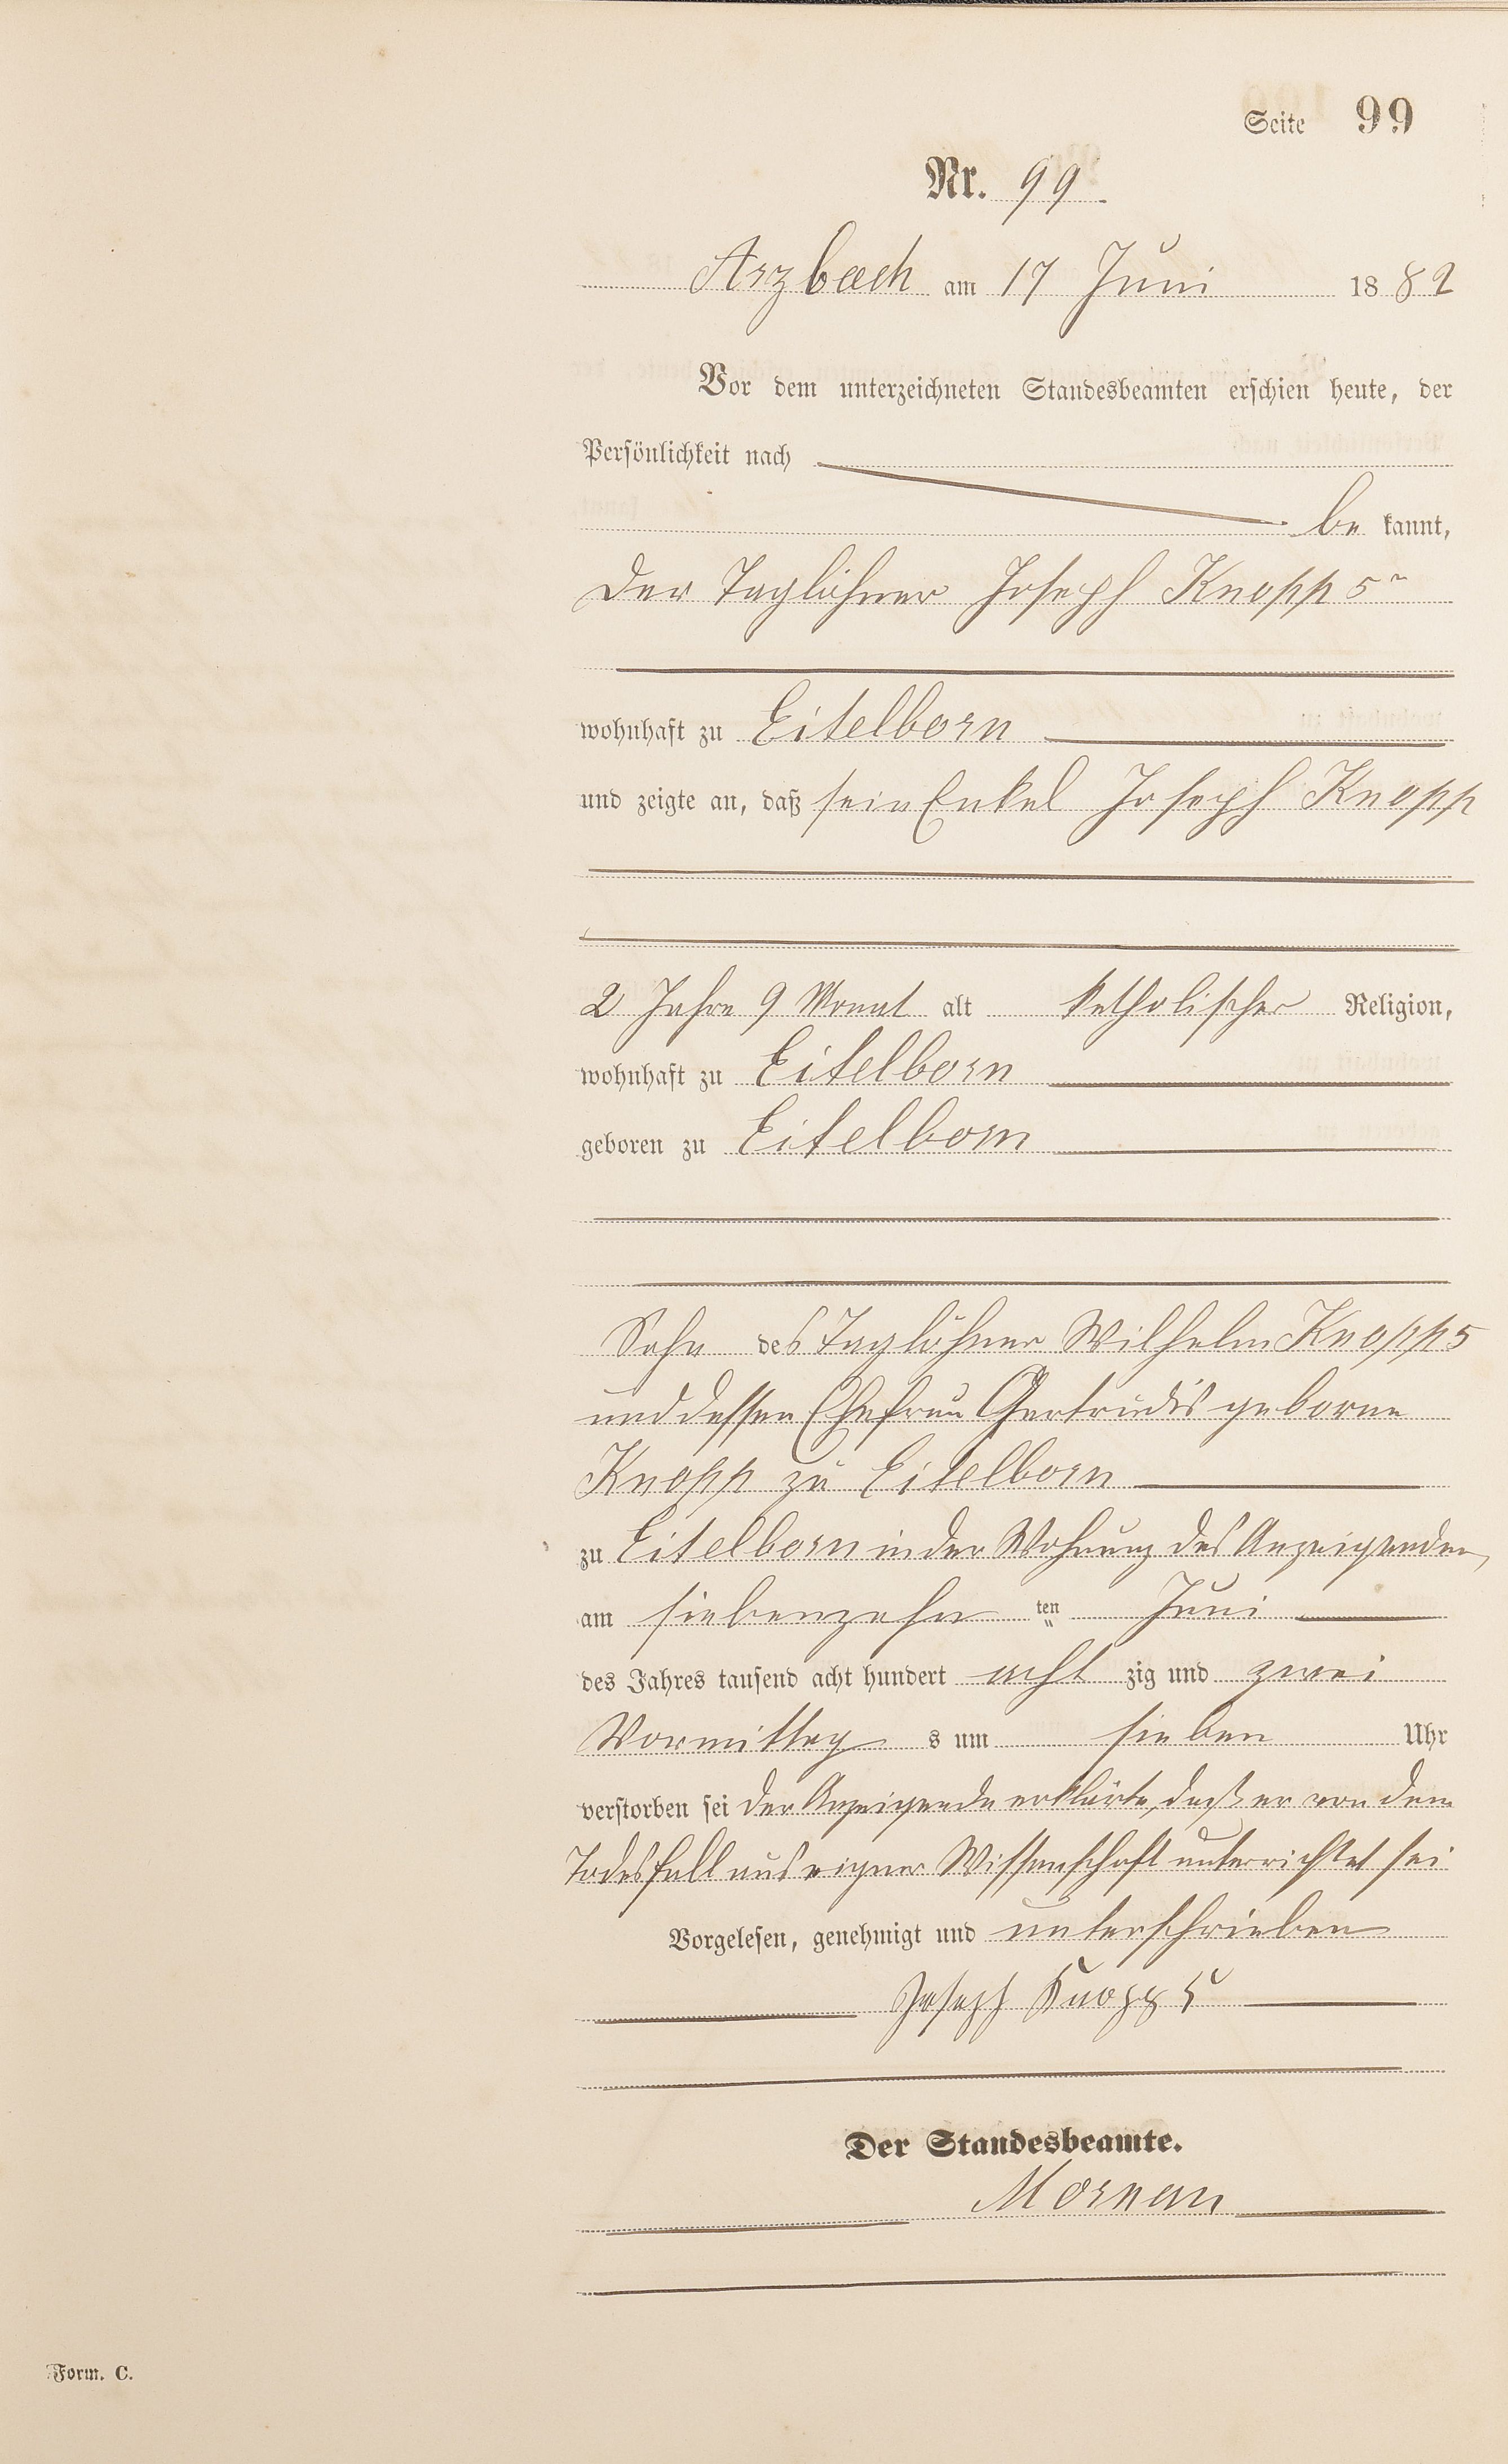 Seite 99
Nr. 99
Arzbach am 17 Juni 1882
Vor dem unterzeichneten Standesbeamten erschien heute, der
Persönlichkeit nach
be kannt,
der Taglöhner Joseph Knopp 5r
wohnhaft zu Eitelborn
und zeigte an, daß sein Enkel Joseph Knopp
2 Jahre 9 Monat alt katholischer Religion,
wohnhaft zu Eitelborn
geboren zu Eitelborn
Sohn des Taglöhner Wilhelm Knopp 5
und dessen Ehefrau Gertrudis geborne
Knopp zu Eitelborn
zu Eitelborn in der Wohnung des Anzeigenden,
am siebenzehn ten Juni
des Jahres tausend acht hundert acht zig und zwei
Vormittag s um sieben Uhr
verstorben sei der Anzeigende erklärte, daß er von dem
Todesfall aus eigner Wissenschaft unterrichtet sei
Vorgelesen, genehmigt und unterschrieben
Joseph Knopp 5
Der Standesbeamte.
Mornan
Form. C.